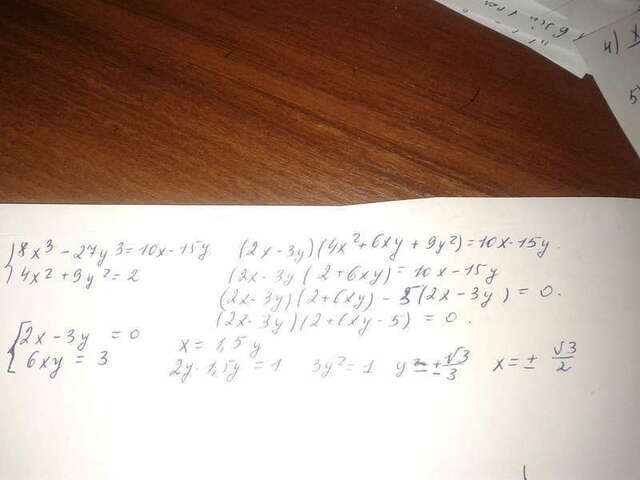 8x³ - 27y³ = 10x - 15y
4x² + 9y² = 2
(2x - 3y)(4x² + 6xy + 9y²) = 10x - 15y.
(2x - 3y(2 + 6xy) = 10x - 15y
(2x - 3y)(2 + 6xy) - 5(2x - 3y) = 0.
(2x - 3y)(2 + 6xy - 5) = 0.
2x - 3y = 0
6xy = 3
x = 1,5y
2y · 1,5y = 1 3y² = 1 y = ± √3/3 x = ± √3/2
4) x
5